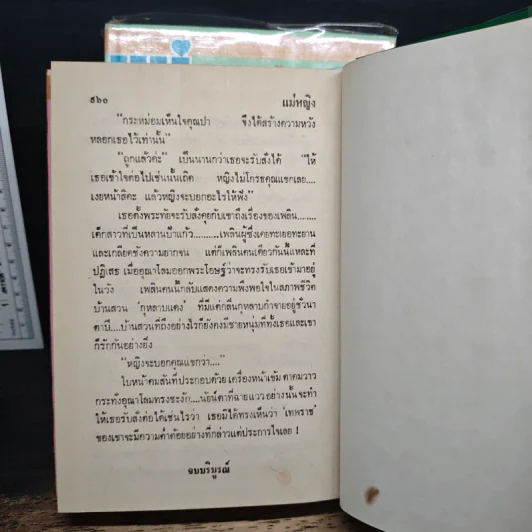 ๕๖๐ แม่หญิง
“กระหม่อมเห็นใจคุณปา จึงได้สร้างความหวัง
หลอกเธอไว้เท่านั้น”
“ถูกแล้วค่ะ” เป็นนานกว่าเธอจะรับสั่งได้ “ให้
เธอเข้าใจต่อไปเช่นนั้นเถิด หญิงไม่โกรธคุณแขกเลย....
เงยหน้าสิคะ แล้วหญิงจะบอกอะไรให้ฟัง”
เธอตั้งพระทัยจะรับสั่งคุยกับเขาถึงเรื่องของเพลิน........
เด็กสาวที่เป็นหลานป้าแก้ว..........เพลินผู้ซึ่งเคยทะเยอทะยาน
และเกลียดชังความยากจน แต่ก็เพลินคนเดียวกันนี้แหละที่
ปฏิเสธ เมื่ออุณาโลมออกพระโอษฐ์ว่าจะทรงรับเธอเข้ามาอยู่
ในวัง เพลินคนนี้กลับแสดงความพึงพอใจในสภาพชีวิต
บ้านสวน ‘กุหลาบแดง’ ที่มีแต่กลิ่นกุหลาบกำจายอยู่ชั่วนา
ตาปี....บ้านสวนที่ถึงอย่างไรก็ยังคงมีชายหนุ่มที่ทั้งเธอและเขา
ก็รักกันอย่างยิ่ง
“หญิงจะบอกคุณแขกว่า....”
ใบหน้าคมสันที่ประกอบด้วยเครื่องหน้าเข้ม ตาคมวาว
กระทั่งอุณาโลมทรงชะงัก....นัยน์ตาที่ฉายแววอย่างนั้นจะทำ
ให้เธอรับสั่งต่อได้เช่นไรว่า เธอมิได้ทรงเห็นว่า ‘เทพราช’
ของเขาจะมีความต่ำต้อยอย่างที่กล่าวแต่ประการใดเลย !
จบบริบูรณ์